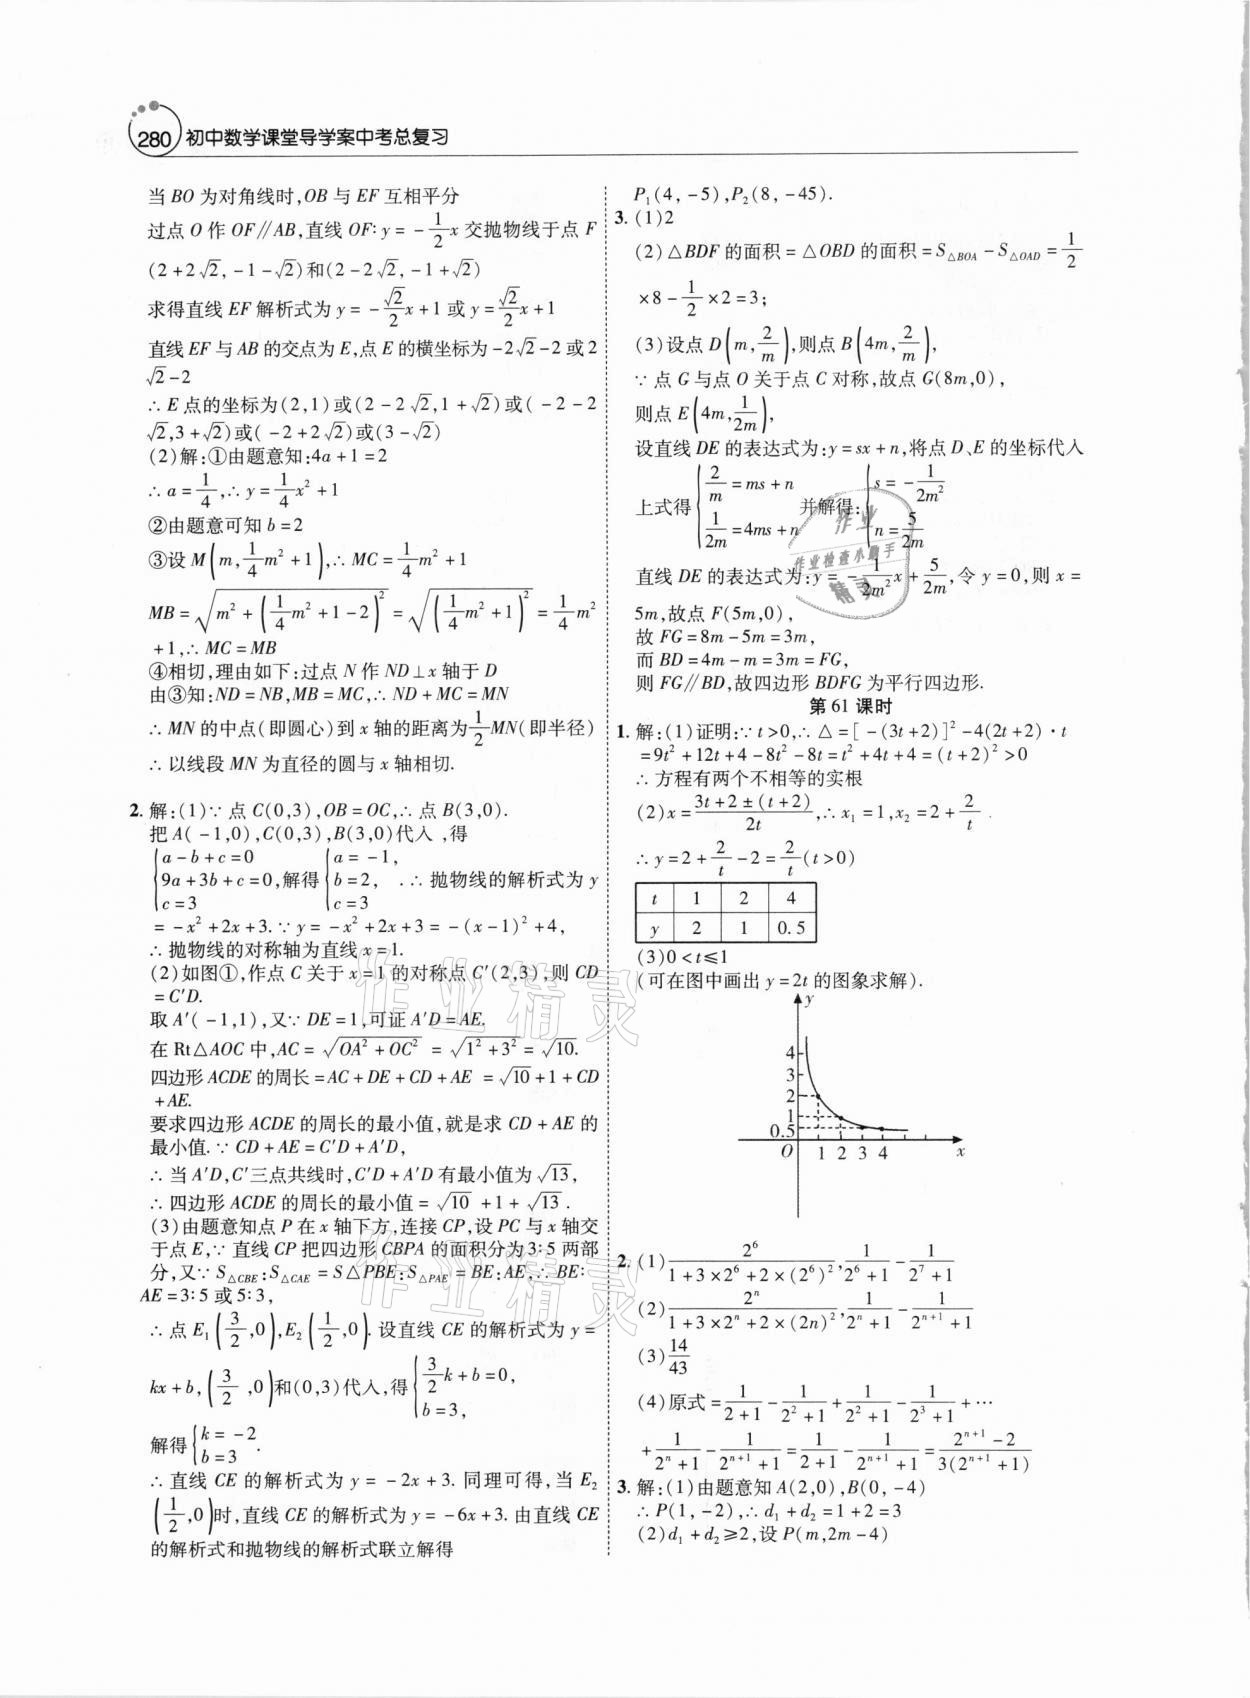 280 初中数学课堂导学案中考总复习
当 BO 为对角线时,OB 与 EF 互相平分
过点 O 作 OF∥AB,直线 OF:y=-1/2x 交抛物线于点 F
(2+2√2,-1-√2)和(2-2√2,-1+√2)
求得直线 EF 解析式为 y=-√2/2x+1 或 y=√2/2x+1
直线 EF 与 AB 的交点为 E,点 E 的横坐标为-2√2-2 或 2
√2-2
∴E 点的坐标为(2,1)或(2-2√2,1+√2)或(-2-2
√2,3+√2)或(-2+2√2)或(3-√2)
(2)解:①由题意知:4a+1=2
∴a=1/4,∴y=1/4x²+1
②由题意可知 b=2
③设 M(m,1/4m²+1),∴MC=1/4m²+1
MB=√(m²+(1/4m²+1-2)²)=√((1/4m²+1)²)=1/4m²
+1,∴MC=MB
④相切,理由如下:过点 N 作 ND⊥x 轴于 D
由③知:ND=NB,MB=MC,∴ND+MC=MN
∴MN 的中点(即圆心)到 x 轴的距离为1/2MN(即半径)
∴以线段 MN 为直径的圆与 x 轴相切.
2. 解:(1)∵点 C(0,3),OB=OC,∴点 B(3,0).
把 A(-1,0),C(0,3),B(3,0)代入,得
{a-b+c=0 {a=-1,
9a+3b+c=0,解得 b=2, .∴抛物线的解析式为 y
c=3 c=3
=-x²+2x+3.∵y=-x²+2x+3=-(x-1)²+4,
∴抛物线的对称轴为直线 x=1.
(2)如图①,作点 C 关于 x=1 的对称点 C′(2,3),则 CD
=C′D.
取 A′(-1,1),又∵DE=1,可证 A′D=AE.
在 Rt△AOC 中,AC=√(OA²+OC²)=√(1²+3²)=√10.
四边形 ACDE 的周长=AC+DE+CD+AE=√10+1+CD
+AE.
要求四边形 ACDE 的周长的最小值,就是求 CD+AE 的
最小值.∵CD+AE=C′D+A′D,
∴当 A′D,C′三点共线时,C′D+A′D 有最小值为√13,
∴四边形 ACDE 的周长的最小值=√10+1+√13.
(3)由题意知点 P 在 x 轴下方,连接 CP,设 PC 与 x 轴交
于点 E,∵直线 CP 把四边形 CBPA 的面积分为 3:5 两部
分,又∵S△CBE:S△CAE=S△PBE:S△PAE=BE:AE,∴BE:
AE=3:5 或 5:3,
∴点 E₁(3/2,0),E₂(1/2,0).设直线 CE 的解析式为 y=
kx+b,(3/2,0)和(0,3)代入,得{3/2k+b=0,
b=3,
解得{k=-2
b=3.
∴直线 CE 的解析式为 y=-2x+3.同理可得,当 E₂
(1/2,0)时,直线 CE 的解析式为 y=-6x+3.由直线 CE
的解析式和抛物线的解析式联立解得
P₁(4,-5),P₂(8,-45).
3. (1)2
(2)△BDF 的面积=△OBD 的面积=S△BOA-S△OAD=1/2
×8-1/2×2=3;
(3)设点 D(m,2/m),则点 B(4m,2/m),
∵点 G 与点 O 关于点 C 对称,故点 G(8m,0),
则点 E(4m,1/2m),
设直线 DE 的表达式为:y=sx+n,将点 D、E 的坐标代入
上式得{2/m=ms+n 并解得:{s=-1/2m²
1/2m=4ms+n n=5/2m
直线 DE 的表达式为:y=-1/2m²x+5/2m,令 y=0,则 x=
5m,故点 F(5m,0),
故 FG=8m-5m=3m,
而 BD=4m-m=3m=FG,
则 FG∥BD,故四边形 BDFG 为平行四边形.
第 61 课时
1. 解:(1)证明:∵t>0,∴△=[-(3t+2)]²-4(2t+2)·t
=9t²+12t+4-8t²-8t=t²+4t+4=(t+2)²>0
∴方程有两个不相等的实根
(2)x=3t+2±(t+2)/2t,∴x₁=1,x₂=2+2/t.
∴y=2+2/t-2=2/t(t>0)
t 1 2 4
y 2 1 0.5
(3)0<t≤1
(可在图中画出 y=2t 的图象求解).
y
4
3
2
1
0.5
O 1 2 3 4 x
2. (1)2⁶/1+3×2⁶+2×(2⁶)²,1/2⁶+1-1/2⁷+1
(2)2ⁿ/1+3×2ⁿ+2×(2n)²,1/2ⁿ+1-1/2ⁿ⁺¹+1
(3)14/43
(4)原式=1/2+1-1/2²+1+1/2²+1-1/2³+1+…
+1/2ⁿ+1-1/2ⁿ⁺¹+1=1/2+1-1/2ⁿ⁺¹+1=2ⁿ⁺¹-2/3(2ⁿ⁺¹+1)
3. 解:(1)由题意知 A(2,0),B(0,-4)
∴P(1,-2),∴d₁+d₂=1+2=3
(2)d₁+d₂≥2,设 P(m,2m-4)
作业
作业检查小助手
精灵
作业精灵
作业精灵